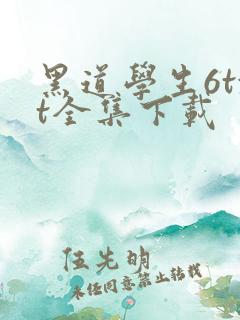 黑道學生6tx
t全集下載
伍先明
未经同意禁止转载